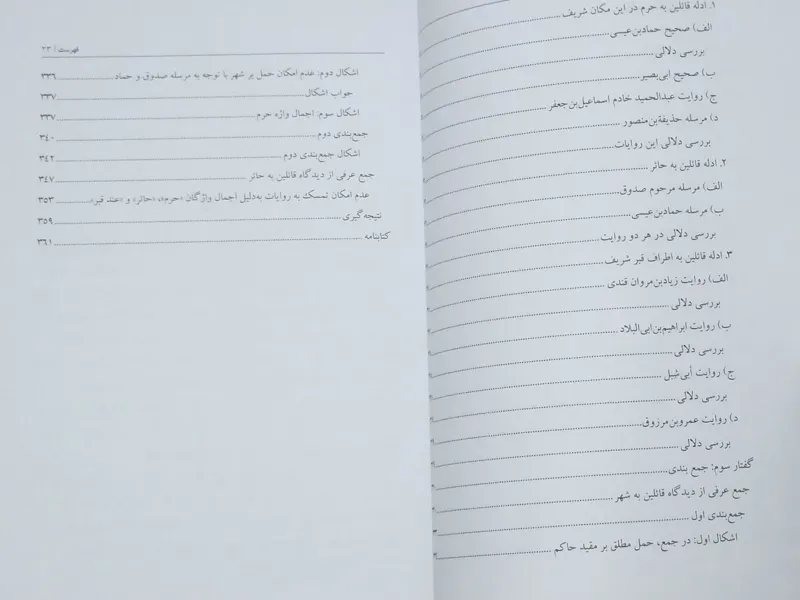 ۱. ادله قائلین به حرم در این مکان شریف
الف) صحیح حمادبن‌عیسی
بررسی دلالی
ب) صحیح ابی‌بصیر
ج) روایت عبدالحمید خادم اسماعیل‌بن‌جعفر
د) مرسله حذیفة‌بن‌منصور
بررسی دلالی این روایات
۲. ادله قائلین به حائر
الف) مرسله مرحوم صدوق
ب) مرسله حمادبن‌عیسی
بررسی دلالی در هر دو روایت
۳. ادله قائلین به اطراف قبر شریف
الف) روایت زیادبن‌مروان قندی
بررسی دلالی
ب) روایت ابراهیم‌بن‌ابی‌البلاد
بررسی دلالی
ج) روایت أبی‌شبل
بررسی دلالی
د) روایت عمروبن‌مرزوق
بررسی دلالی
گفتار سوم: جمع بندی
جمع عرفی از دیدگاه قائلین به شهر
جمع‌بندی اول
اشکال اول: در جمع، حمل مطلق بر مقید حاکم
فهرست | ۲۳
اشکال دوم: عدم امکان حمل بر شهر با توجه به مرسله صدوق و حماد ۳۳٦
جواب اشکال ۳۳۷
اشکال سوم: اجمال واژه حرم ۳۳۷
جمع‌بندی دوم ۳٤۰
اشکال جمع‌بندی دوم ۳٤۲
جمع عرفی از دیدگاه قائلین به حائر ۳٤۷
عدم امکان تمسک به روایات به‌دلیل اجمال واژگان «حرم»، «حائر» و «عند قبر» ۳۵۳
نتیجه‌گیری ۳۵۹
کتابنامه ۳٦۱